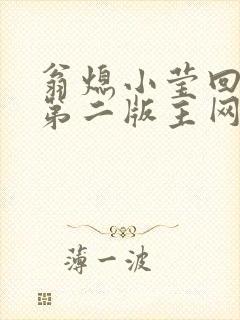 翁熄小莹回
第二版主网
薄一波